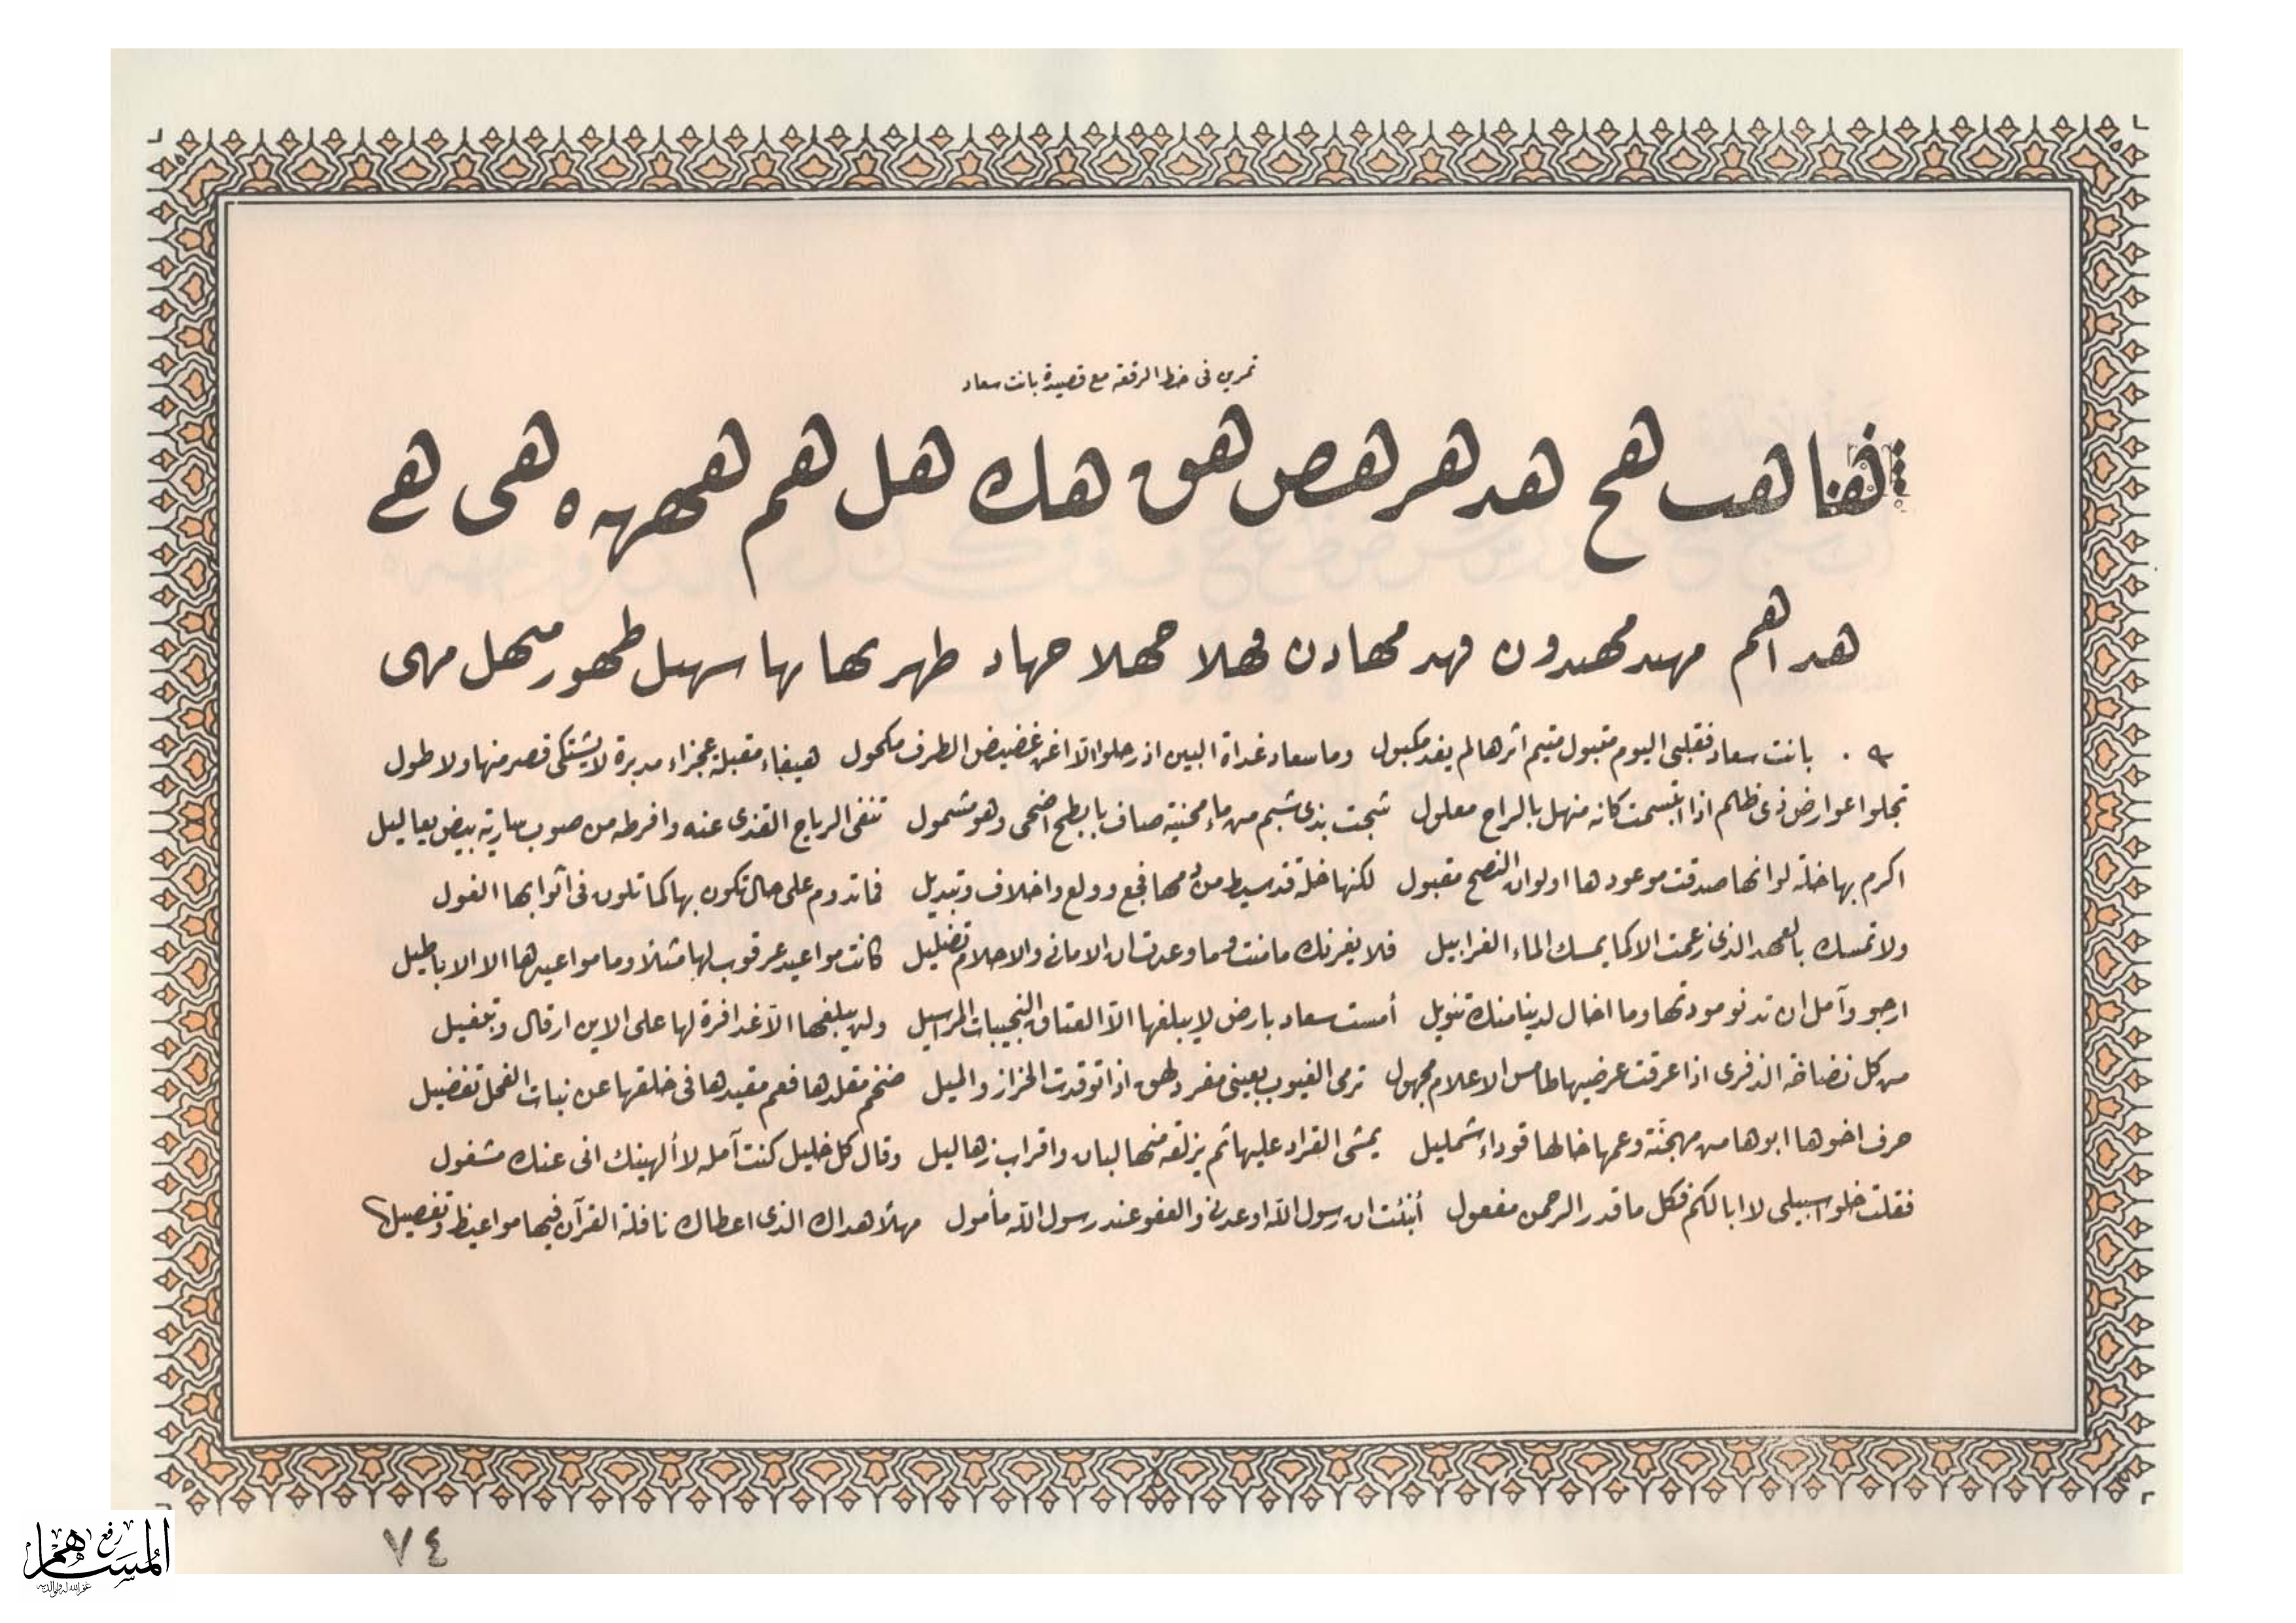 تمرين فى خط الرقعه مع قصيدة بانت سعاد
ها هب هح هد هر هص هق هك هل هم همهمه ه هى هے
هد اهم مهيد مهيدون فهد مهادن فهلا مهلا جهاد طهر بها بها سهيل طهور منهل مهى
بانت سعاد فقلبى اليوم متبول متيم اثرها لم يفد مكبول وما سعاد غداة البين اذ رحلوا الا اغن غضيض الطرف مكحول هيفاء مقبلة عجزاء مدبرة لا يشتكى قصر منها ولا طول
تجلوا عوارض ذى ظلم اذا ابتسمت كانه منهل بالراح معلول شجت بذى شبم من ماء محنية صاف بابطح اضحى وهو مشمول تنفى الرياح القذى عنه وافرطه من صوب سارية بيض يعاليل
اكرم بها خلة لو انها صدقت موعودها او لو ان النصح مقبول لكنها خلة قد سيط من دمها فجع وولع واخلاف وتبديل فما تدوم على حال تكون بها كما تلون فى اثوابها الغول
ولا تمسك بالعهد الذى زعمت الا كما يمسك الماء الغرابيل فلا يغرنك ما منت وما وعدت ان الامانى والاحلام تضليل كانت مواعيد عرقوب لها مثلا وما مواعيدها الا الاباطيل
ارجو وآمل ان تدنو مودتها وما اخال لدينا منك تنويل أمست سعاد بارض لا يبلغها الا العتاق النجيبات المراسيل ولن يبلغها الا غدافرة لها على الاين ارقال وتبغيل
من كل نضاخة الذفرى اذا عرقت عرضيها طامس الاعلام مجهول ترمى الغيوب بعينى مفرد لهق اذا توقدت الحزاز والميل ضخم مقلدها فعم مقيدها فى خلقها عن نبات الفحل تفضيل
حرف اخوها ابوها من مهجنة وعمها خالها قوداء شمليل يمشى القراد عليها ثم يزلقه منها لبان واقراب زهاليل وقال كل خليل كنت آمله لا ألهينك انى عنك مشغول
فقلت خلوا سبيلى لا ابا لكم فكل ما قدر الرحمن مفعول أنبئت ان رسول الله اوعدنى والعفو عند رسول الله مأمول مهلا هداك الذى اعطاك نافلة القرآن فيها مواعيظ وتفصيل
٧٤
رفع المساهم
غفر الله له ولوالديه